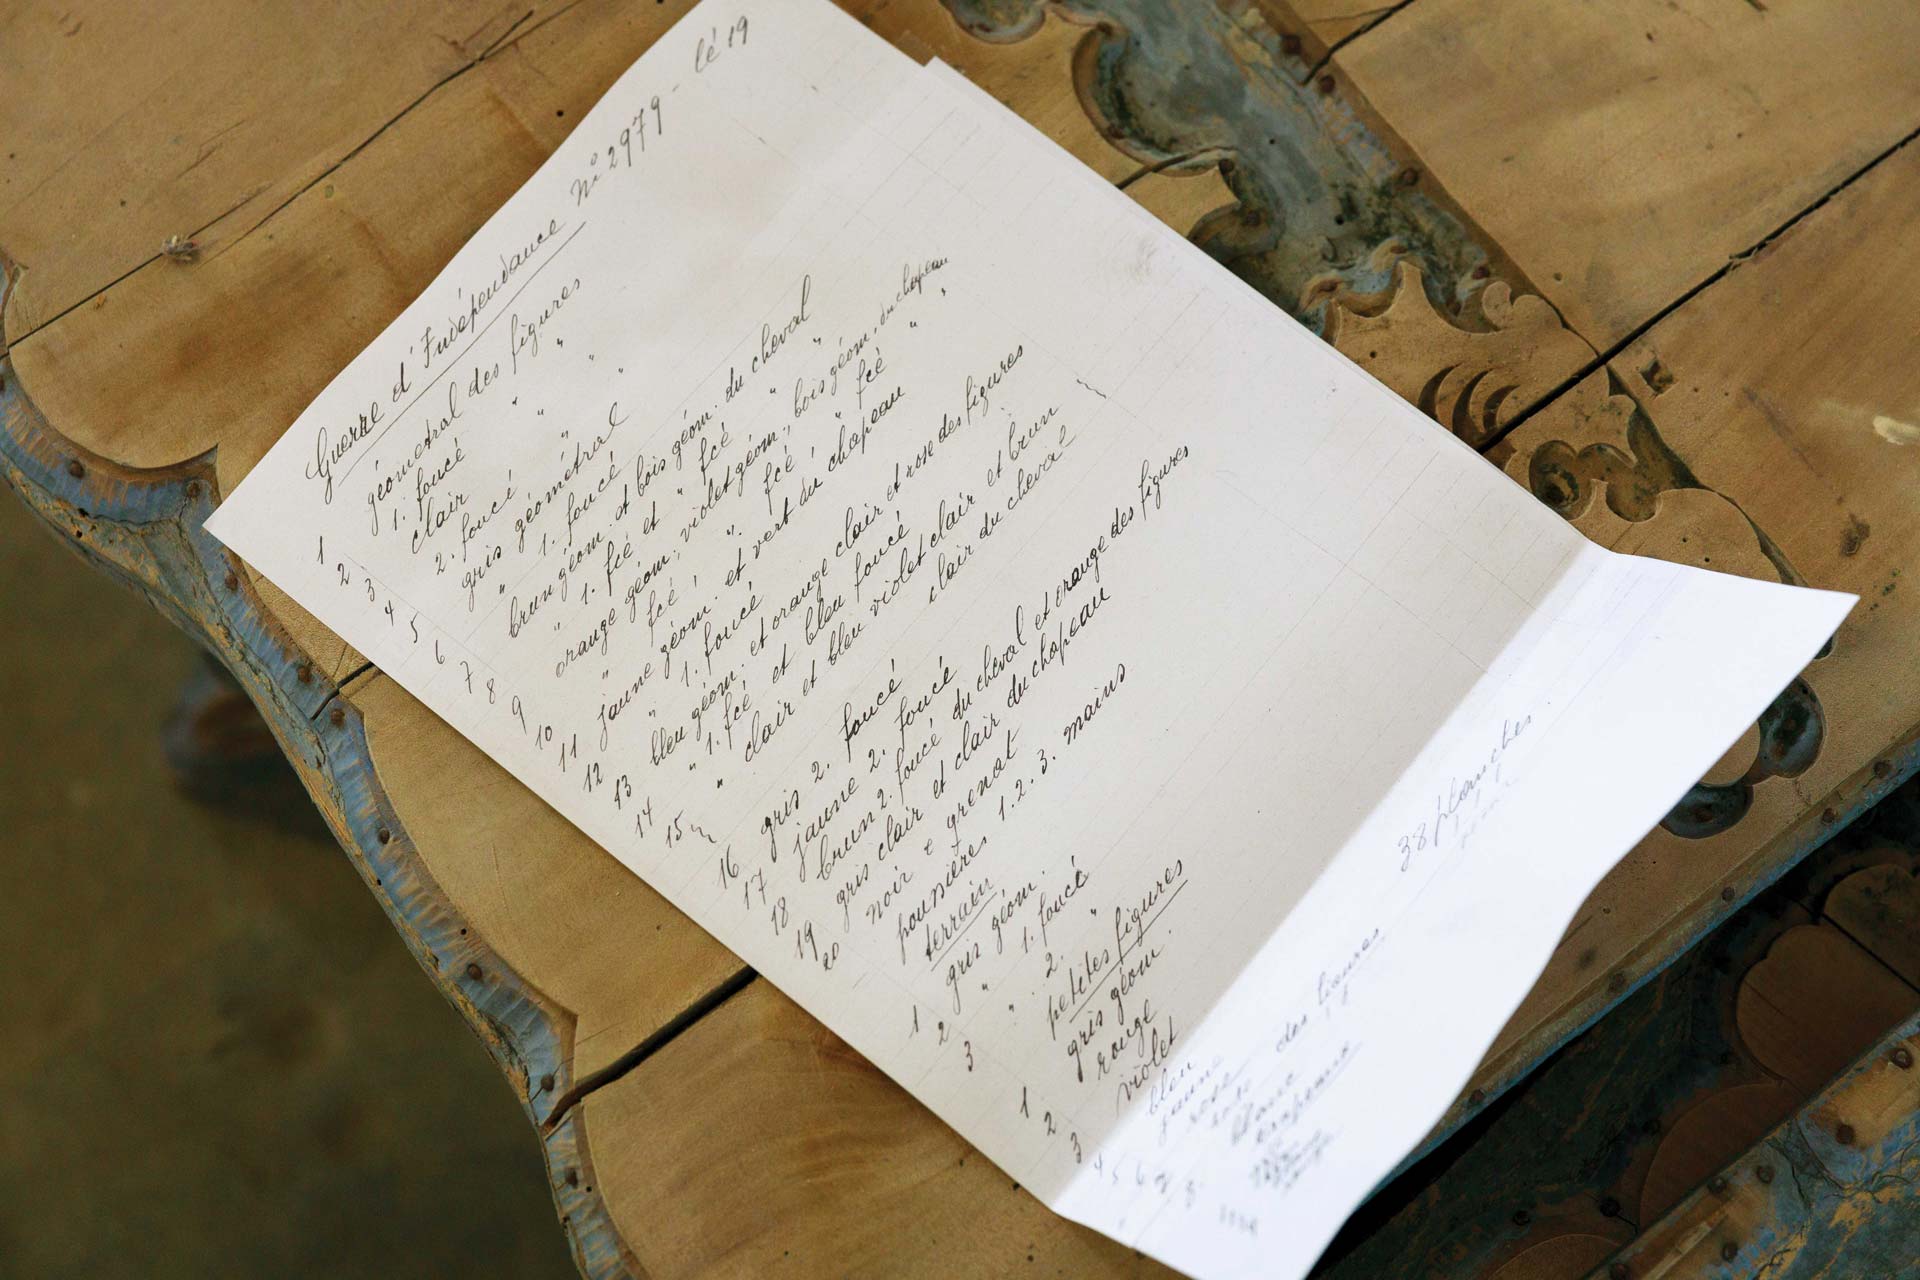 Guerre d'Indépendance No 2979 - lé 19
1 géometral des figures
2 1. foncé " "
3 clair " "
4 2. foncé " "
5 gris géométral
6 " 1. foncé
7 brun géom. et bois géom. du cheval
8 " 1. fcé et " fcé " "
9 orange géom., violet géom., bois géom. du chapeau
10 " fcé, " fcé, " fcé " "
11 jaune géom. et vert du chapeau
12 " 1. foncé
13 bleu géom. et orange clair et rose des figures
14 " 1. fcé et bleu foncé
15 " clair et bleu violet clair et brun
clair du cheval
16 gris 2. foncé
17 jaune 2. foncé
18 brun 2. foncé du cheval et orange des figures
19 gris clair et clair du chapeau
20 noir e grenat
poussières 1. 2. 3. mains
terrain
1 gris géom.
2 " 1. foncé
3 " 2. "
petites figures
1 gris géom.
2 rouge
3 violet
4 bleu
5 jaune
6 rose des figures
8 blanc
38 planches.